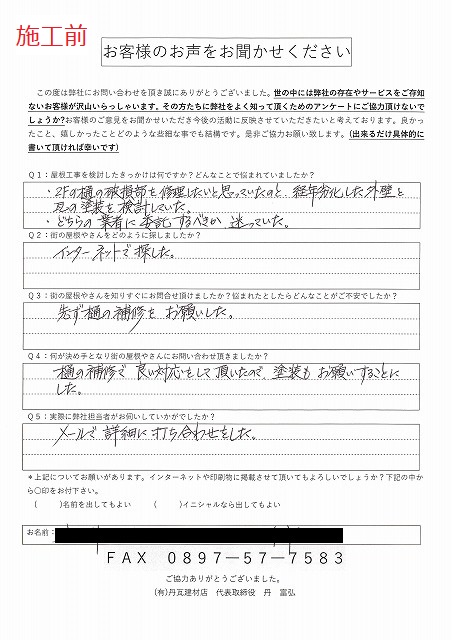 施工前
お客様のお声をお聞かせください
この度は弊社にお問い合わせを頂き誠にありがとうございました。世の中には弊社の存在やサービスをご存知
ないお客様が沢山いらっしゃいます。その方たちに弊社をよく知って頂くためのアンケートにご協力頂けないで
しょうか?お客様のご意見をお聞かせいただき今後の活動に反映させていただきたいと考えております。良かっ
たこと、嬉しかったことどのような些細な事でも結構です。是非ご協力お願い致します。(出来るだけ具体的に
書いて頂ければ幸いです)
Q1:屋根工事を検討したきっかけは何ですか?どんなことで悩まれていましたか?
・2Fの樋の破損部を修理したいと思っていたのと、経年劣化した外壁と
瓦の塗装を検討していた。
・どちらの業者に委託するべきか迷っていた。
Q2:街の屋根やさんをどのように探しましたか?
インターネットで探した。
Q3:街の屋根やさんを知りすぐにお問合せ頂けましたか?悩まれたとしたらどんなことがご不安でしたか?
先ず樋の補修をお願いした。
Q4:何が決め手となり街の屋根やさんにお問い合わせ頂きましたか?
樋の補修で良い対応をして頂いたので、塗装もお願いすることに
した。
Q5:実際に弊社担当者がお伺いしていかがでしたか?
メールで詳細に打ち合わせをした。
*上記についてお願いがあります。インターネットや印刷物に掲載させて頂いてもよろしいでしょうか?下記の中か
ら〇印をお付下さい。
( )名前を出してもよい ( )イニシャルなら出してもよい
お名前:
FAX 0897-57-7583
ご協力ありがとうございました。
(有)丹瓦建材店 代表取締役 丹 富弘